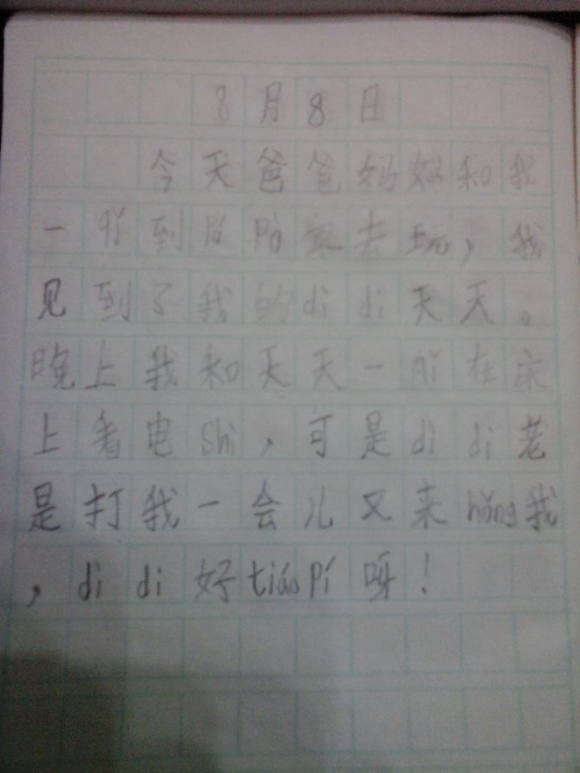 8月8日
今天爸爸妈妈和我
一qǐ到 家去玩，我
见到了我的di di天天。
晚上我和天天一qǐ在床
上看电Shì，可是di di老
是打我一会儿又来hǒng我
，di di好tiáo Pí呀！